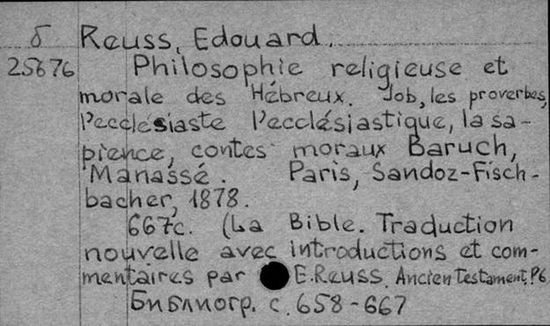 б Reuss, Edouard.
25676 Philosophie religieuse et
morale des Hébreux. Job, les proverbes,
l'ecclésiaste l'ecclésiastique, la sa-
pience, contes moraux Baruch,
Manassé. Paris, Sandoz-Fisch-
bacher, 1878.
667с. (La Bible. Traduction
nouvelle avec introductions et com-
mentaires par E. Reuss. Ancien testament, P6
Библиогр. с. 658-667